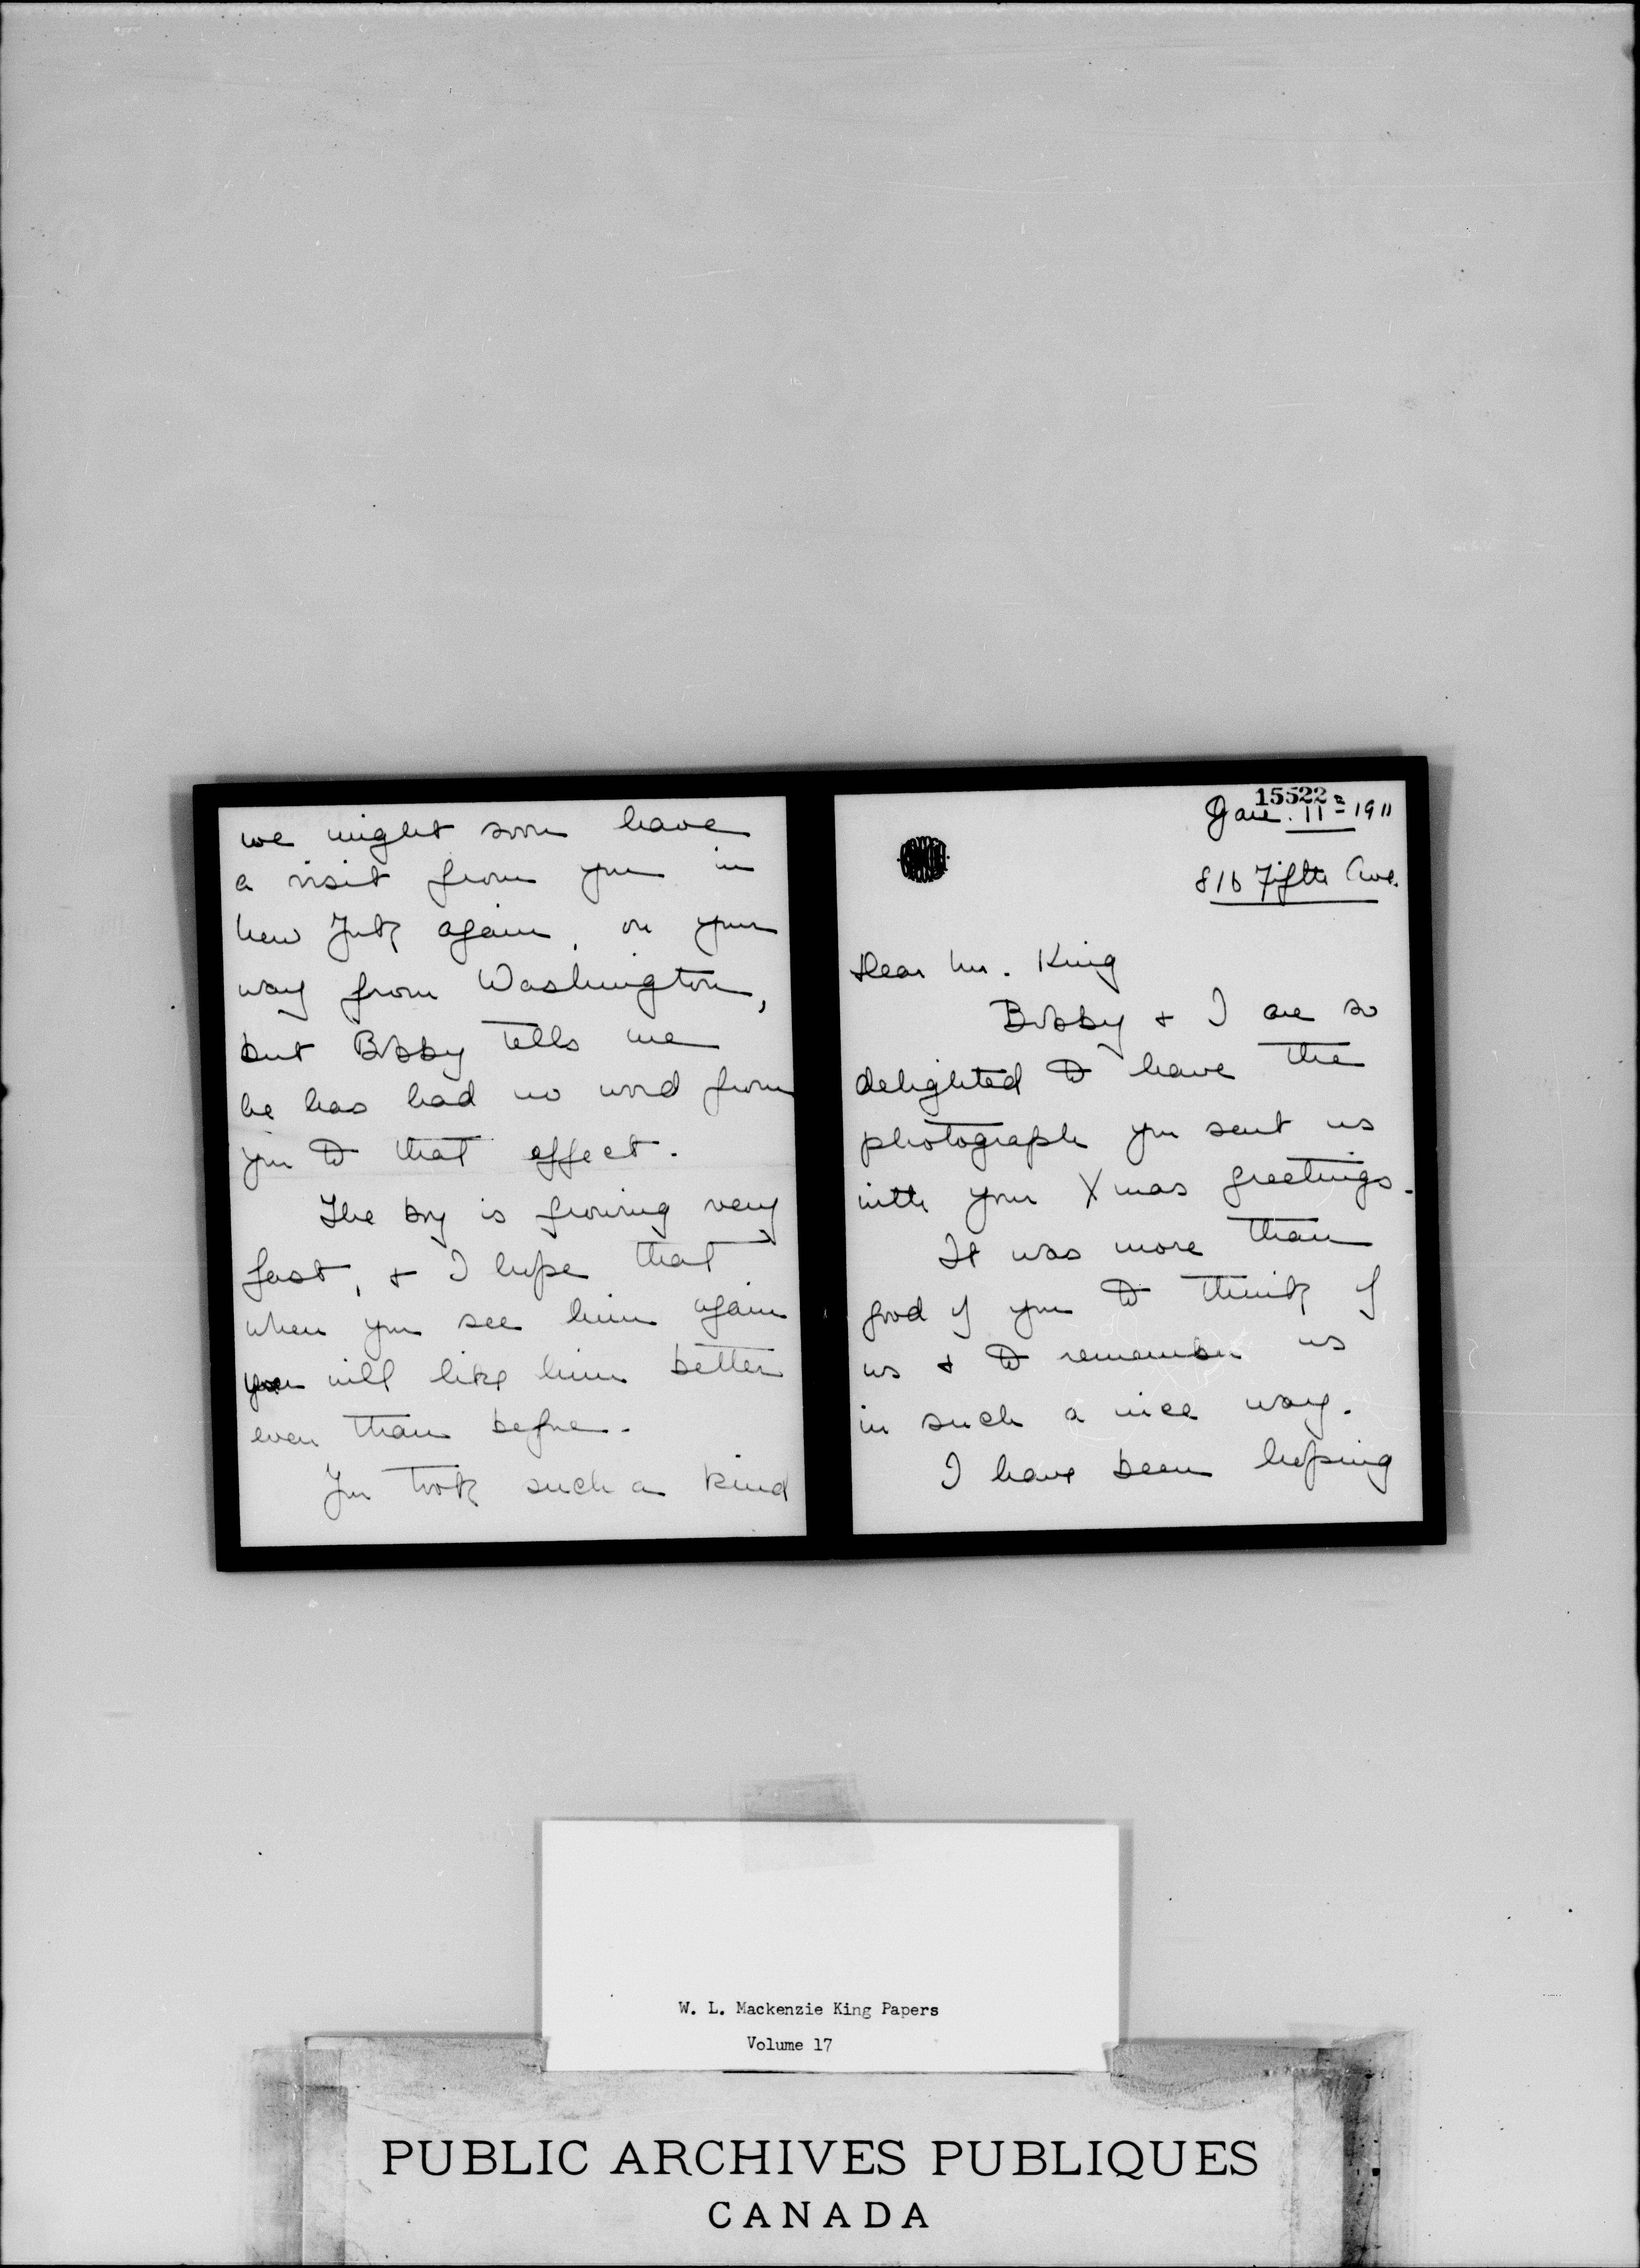 15522
Jan. 11th 1911
816 Fifth Ave.
Dear Mr. King
Bobby + I are so
delighted to have the
photograph you sent us
with your Xmas greetings.
It was more than
good of you to think of
us + to remember us
in such a nice way.
I have been hoping
we might soon have
a visit from you in
New York again, on your
way from Washington,
but Bobby tells me
he has had no word from
you to that effect.
The boy is growing very
fast, + I hope that
when you see him again
you will like him better
even than before.
You took such a kind
W. L. Mackenzie King Papers
Volume 17
PUBLIC ARCHIVES PUBLIQUES
CANADA